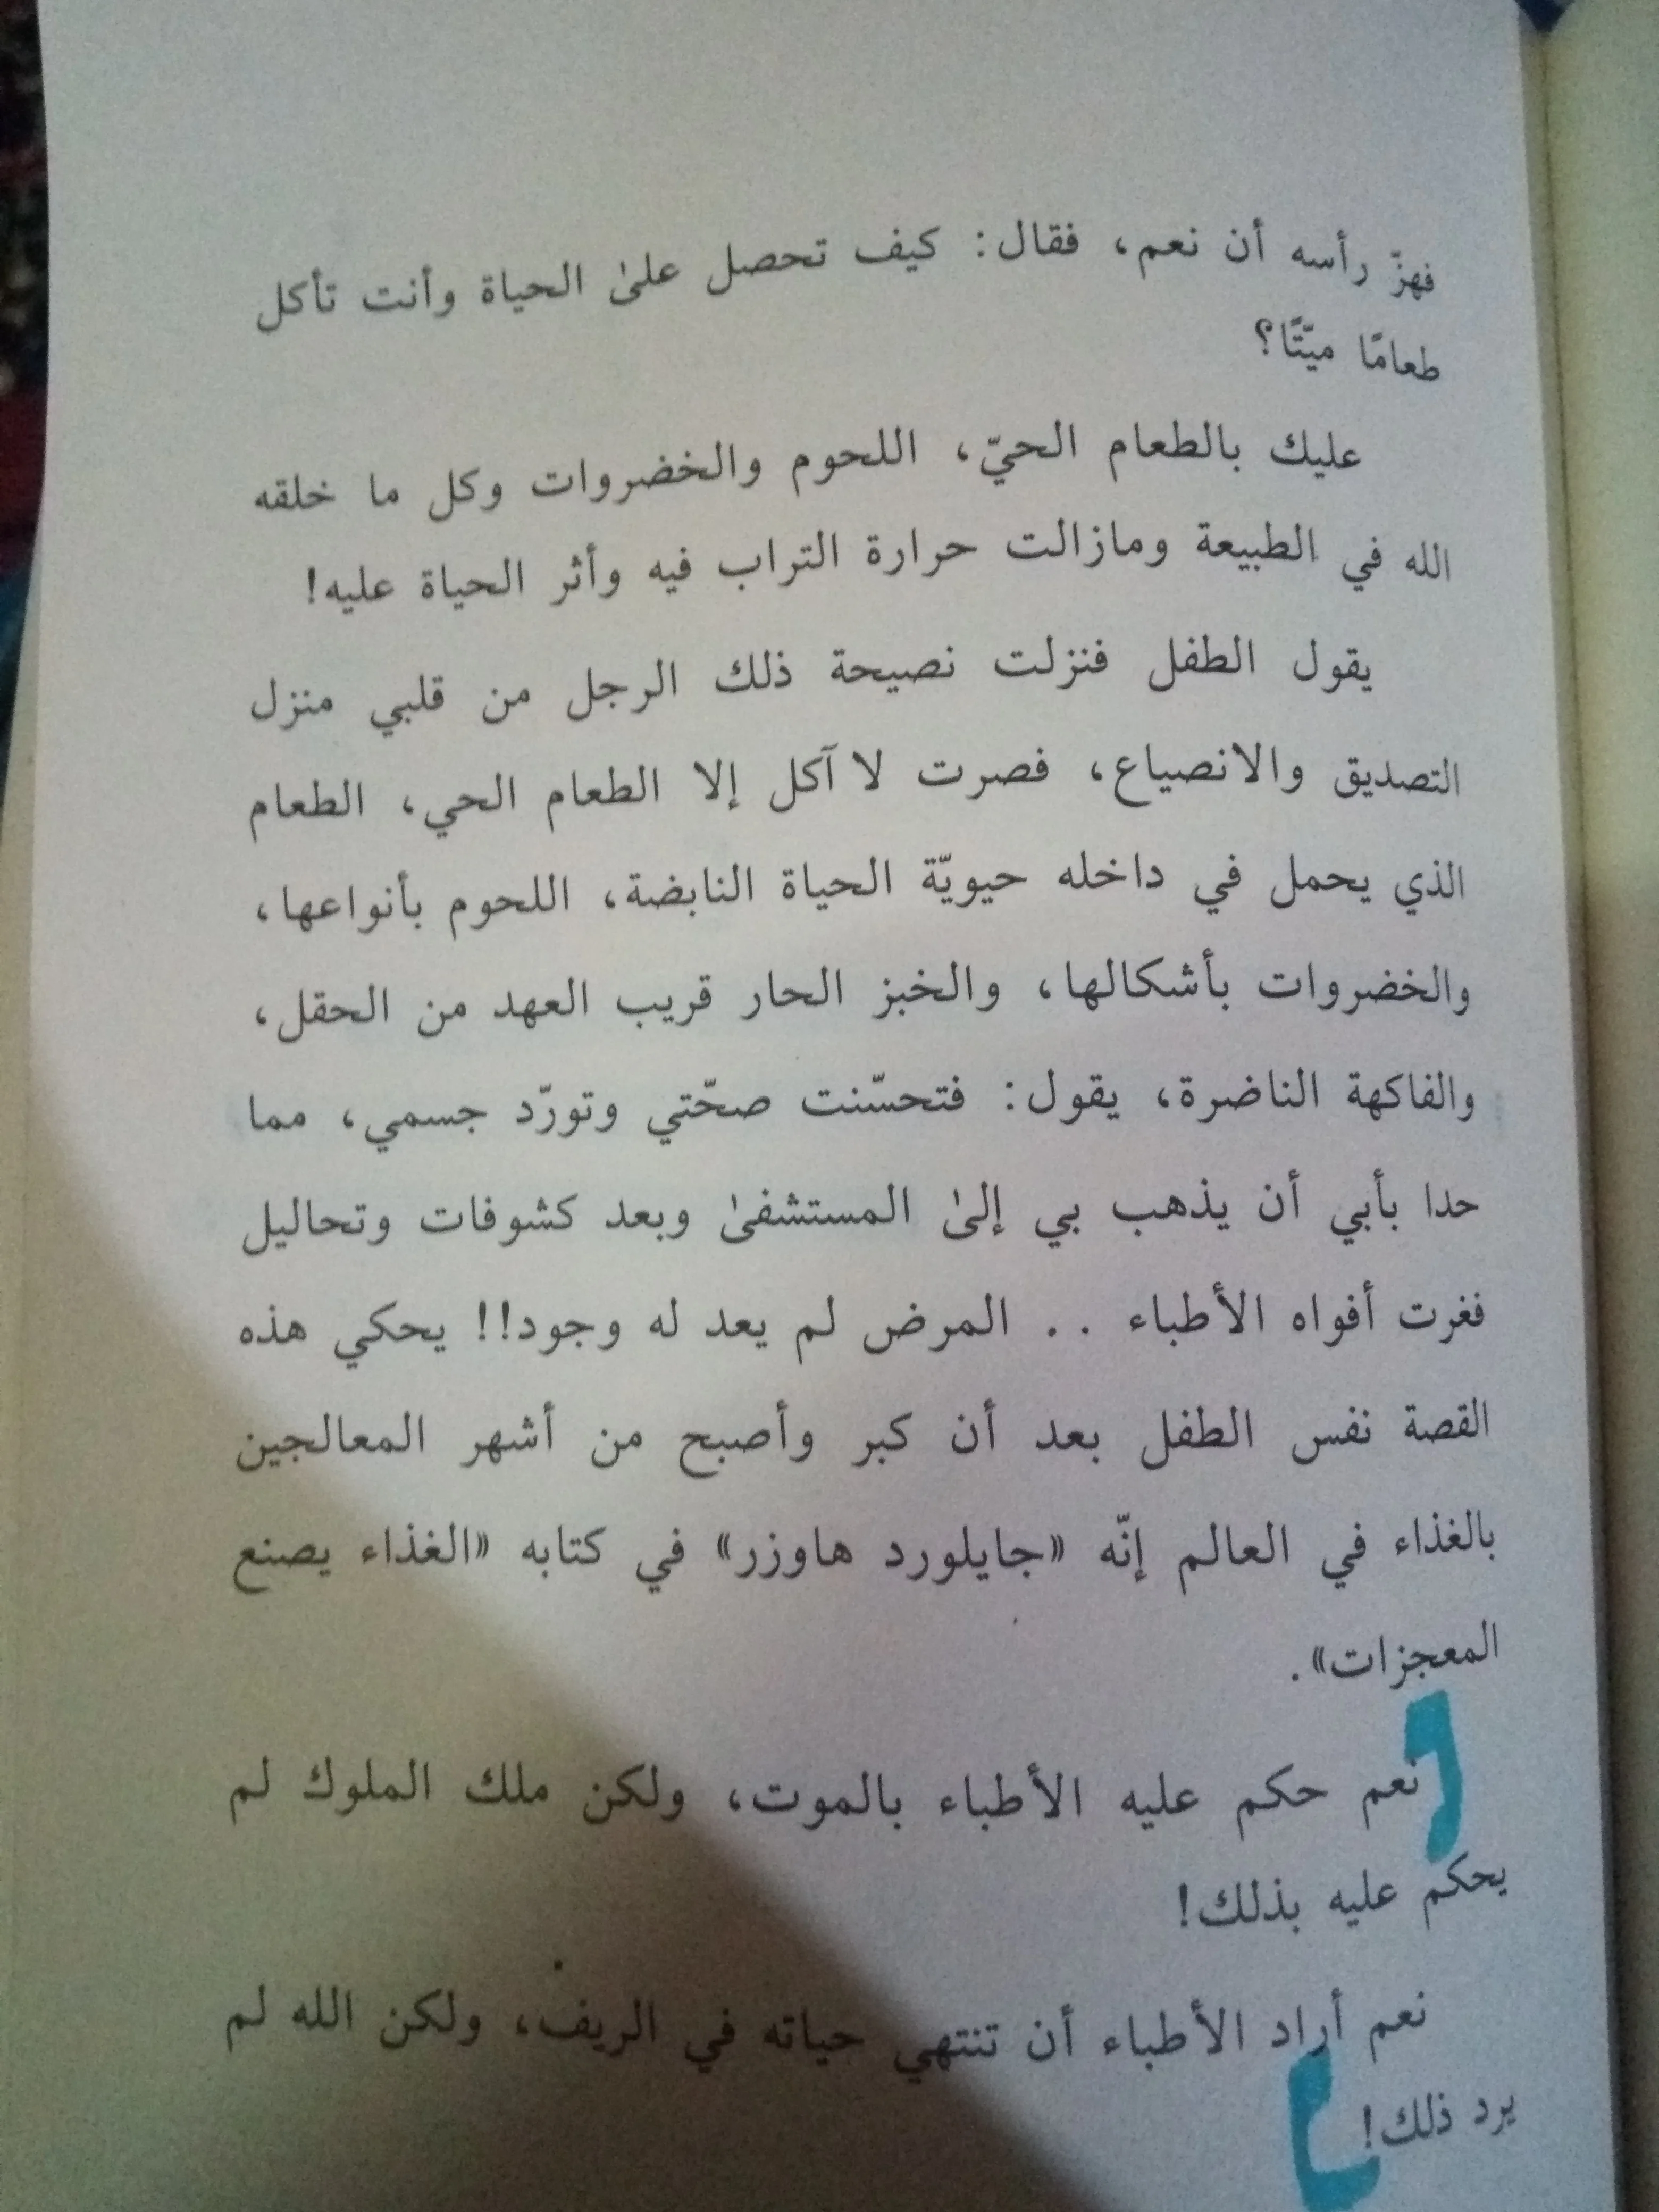 فهزّ رأسه أن نعم، فقال: كيف تحصل علىٰ الحياة وأنت تأكل
طعامًا ميّتًا؟
عليك بالطعام الحيّ، اللحوم والخضروات وكل ما خلقه
الله في الطبيعة ومازالت حرارة التراب فيه وأثر الحياة عليه!
يقول الطفل فنزلت نصيحة ذلك الرجل من قلبي منزل
التصديق والانصياع، فصرت لا آكل إلا الطعام الحي، الطعام
الذي يحمل في داخله حيويّة الحياة النابضة، اللحوم بأنواعها،
والخضروات بأشكالها، والخبز الحار قريب العهد من الحقل،
والفاكهة الناضرة، يقول: فتحسّنت صحّتي وتورّد جسمي، مما
حدا بأبي أن يذهب بي إلىٰ المستشفىٰ وبعد كشوفات وتحاليل
فغرت أفواه الأطباء .. المرض لم يعد له وجود!! يحكي هذه
القصة نفس الطفل بعد أن كبر وأصبح من أشهر المعالجين
بالغذاء في العالم إنّه «جايلورد هاوزر» في كتابه «الغذاء يصنع
المعجزات».
نعم حكم عليه الأطباء بالموت، ولكن ملك الملوك لم
يحكم عليه بذلك!
نعم أراد الأطباء أن تنتهي حياته في الريف، ولكن الله لم
يرد ذلك!